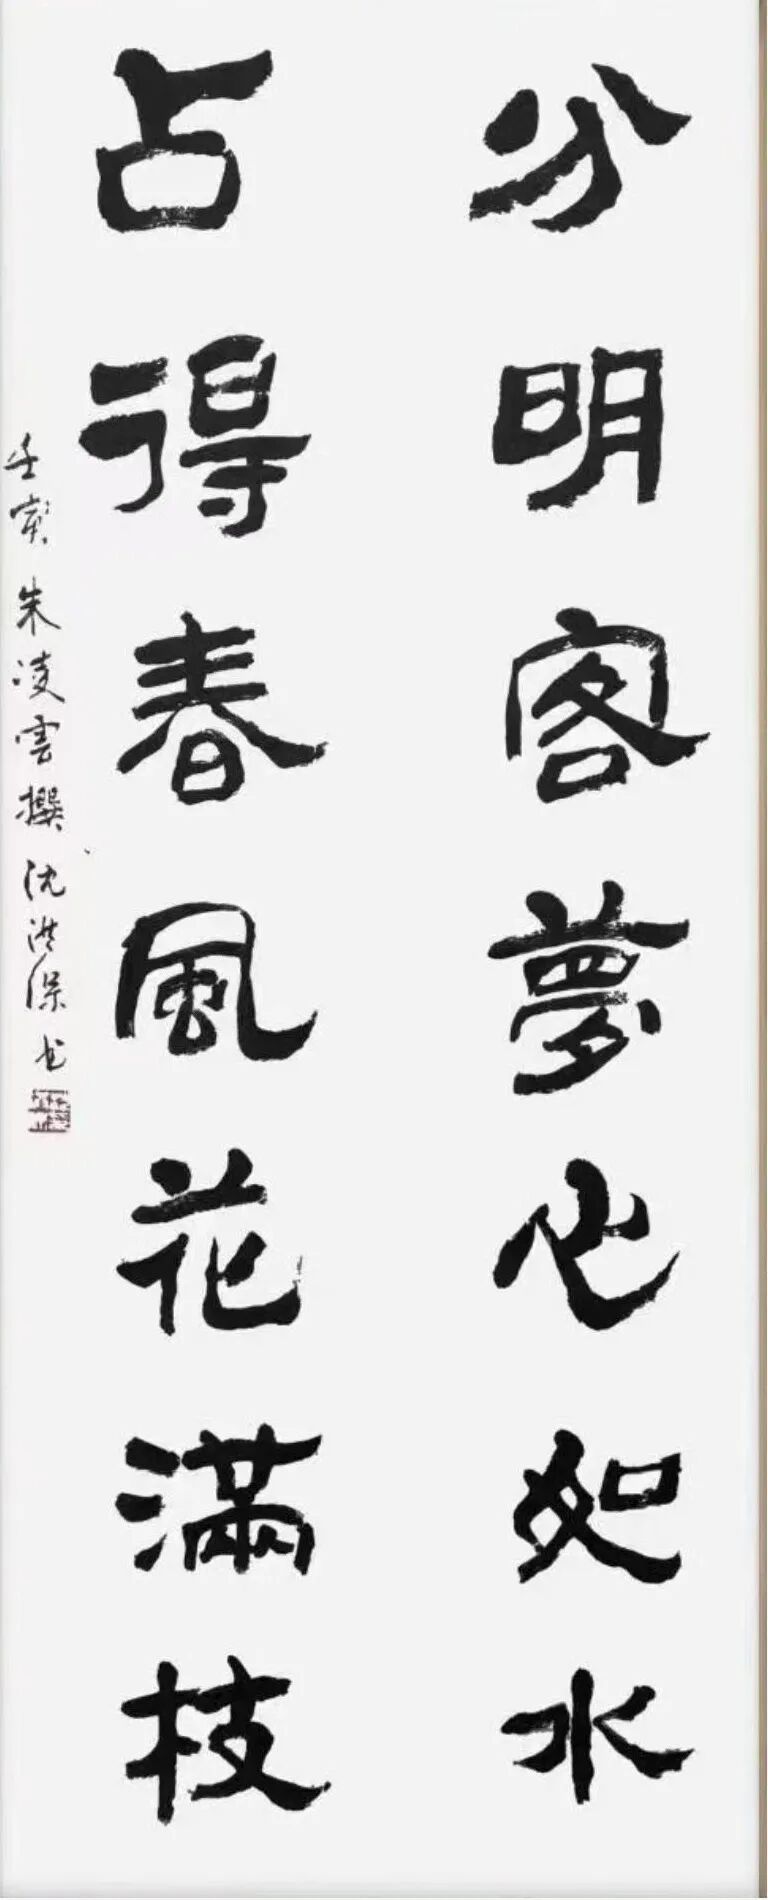 分明客夢心如水
占得春風花滿枝
壬寅朱凌雲撰沈洪保书